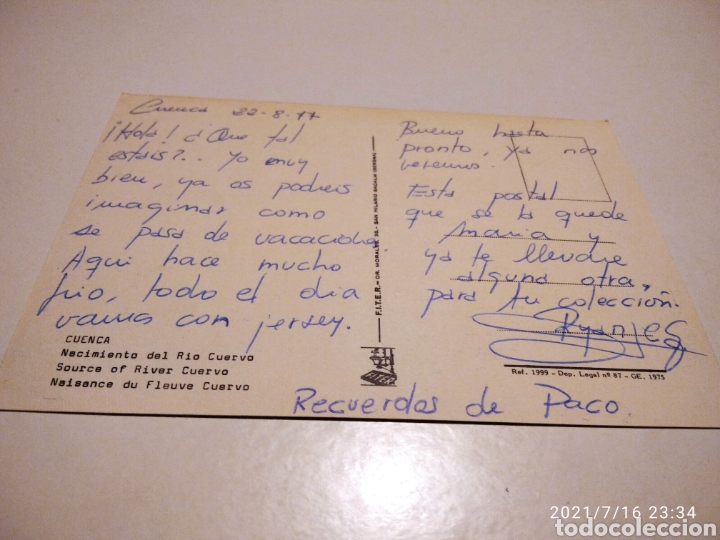 Cuenca 22-8-77
¡Hola! ¿Que tal
estais?.. Yo muy
bien, ya os podreis
imaginar como
se pasa de vacaciones
Aqui hace mucho
frio, todo el dia
vamos con jersey.
CUENCA
Nacimiento del Rio Cuervo
Source of River Cuervo
Naisance du Fleuve Cuervo
F.I.T.E.R. - DR. MORALES, 30. - SAN HILARIO SACALM (GERONA)
Bueno hasta
pronto, ya nos
veremos.
Esta postal
que se la quede
Maria y
ya te llevdre
alguna otra,
para tu colección.
Ref. 1999 - Dep. Legal nº 87 - GE. 1975
Recuerdos de Paco.
2021/7/16 23:34
todocoleccion